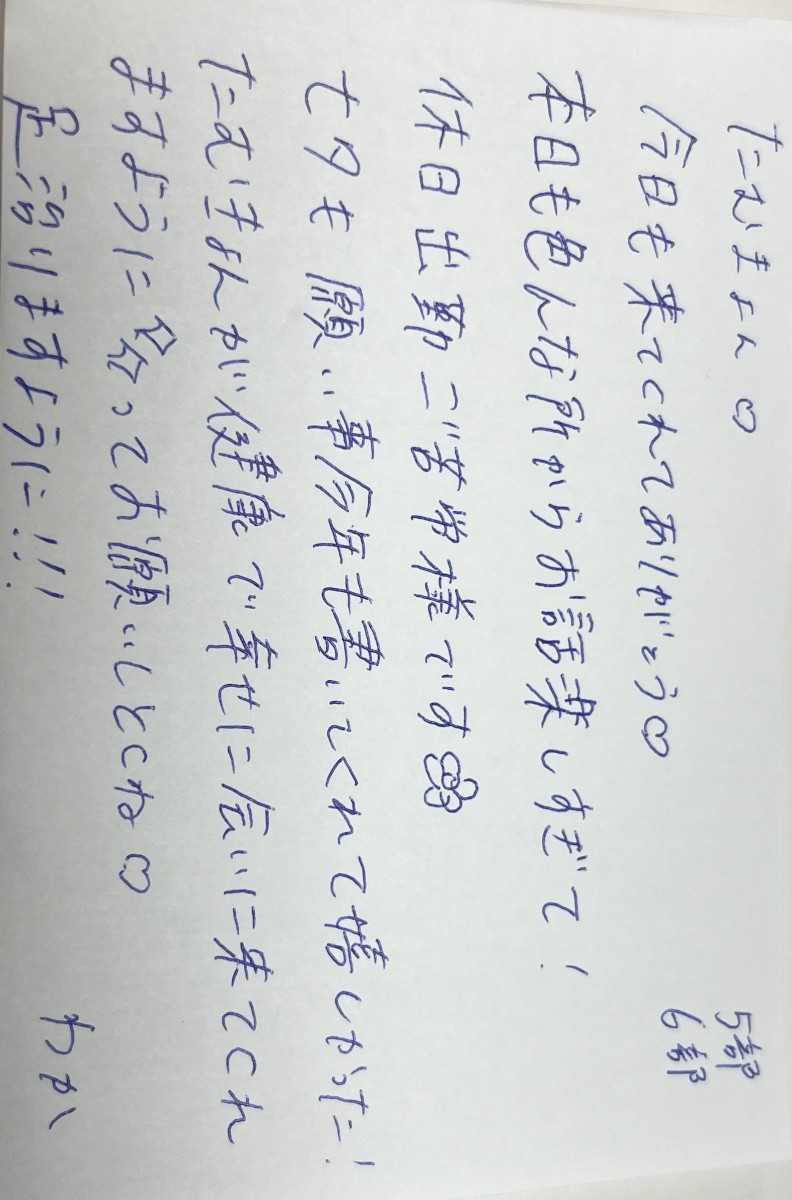 たむきょん♡
5部
6部
今日も来てくれてありがとう♡
本日も色んな所からお話楽しすぎて！
休日出勤ご苦労様です
七夕も願い事今年も書いてくれて嬉しかったー！
たむきょんが健康で幸せに会いに来てくれ
ますように 祈ってお願いしとくね♡
足治りますように!!!
わか